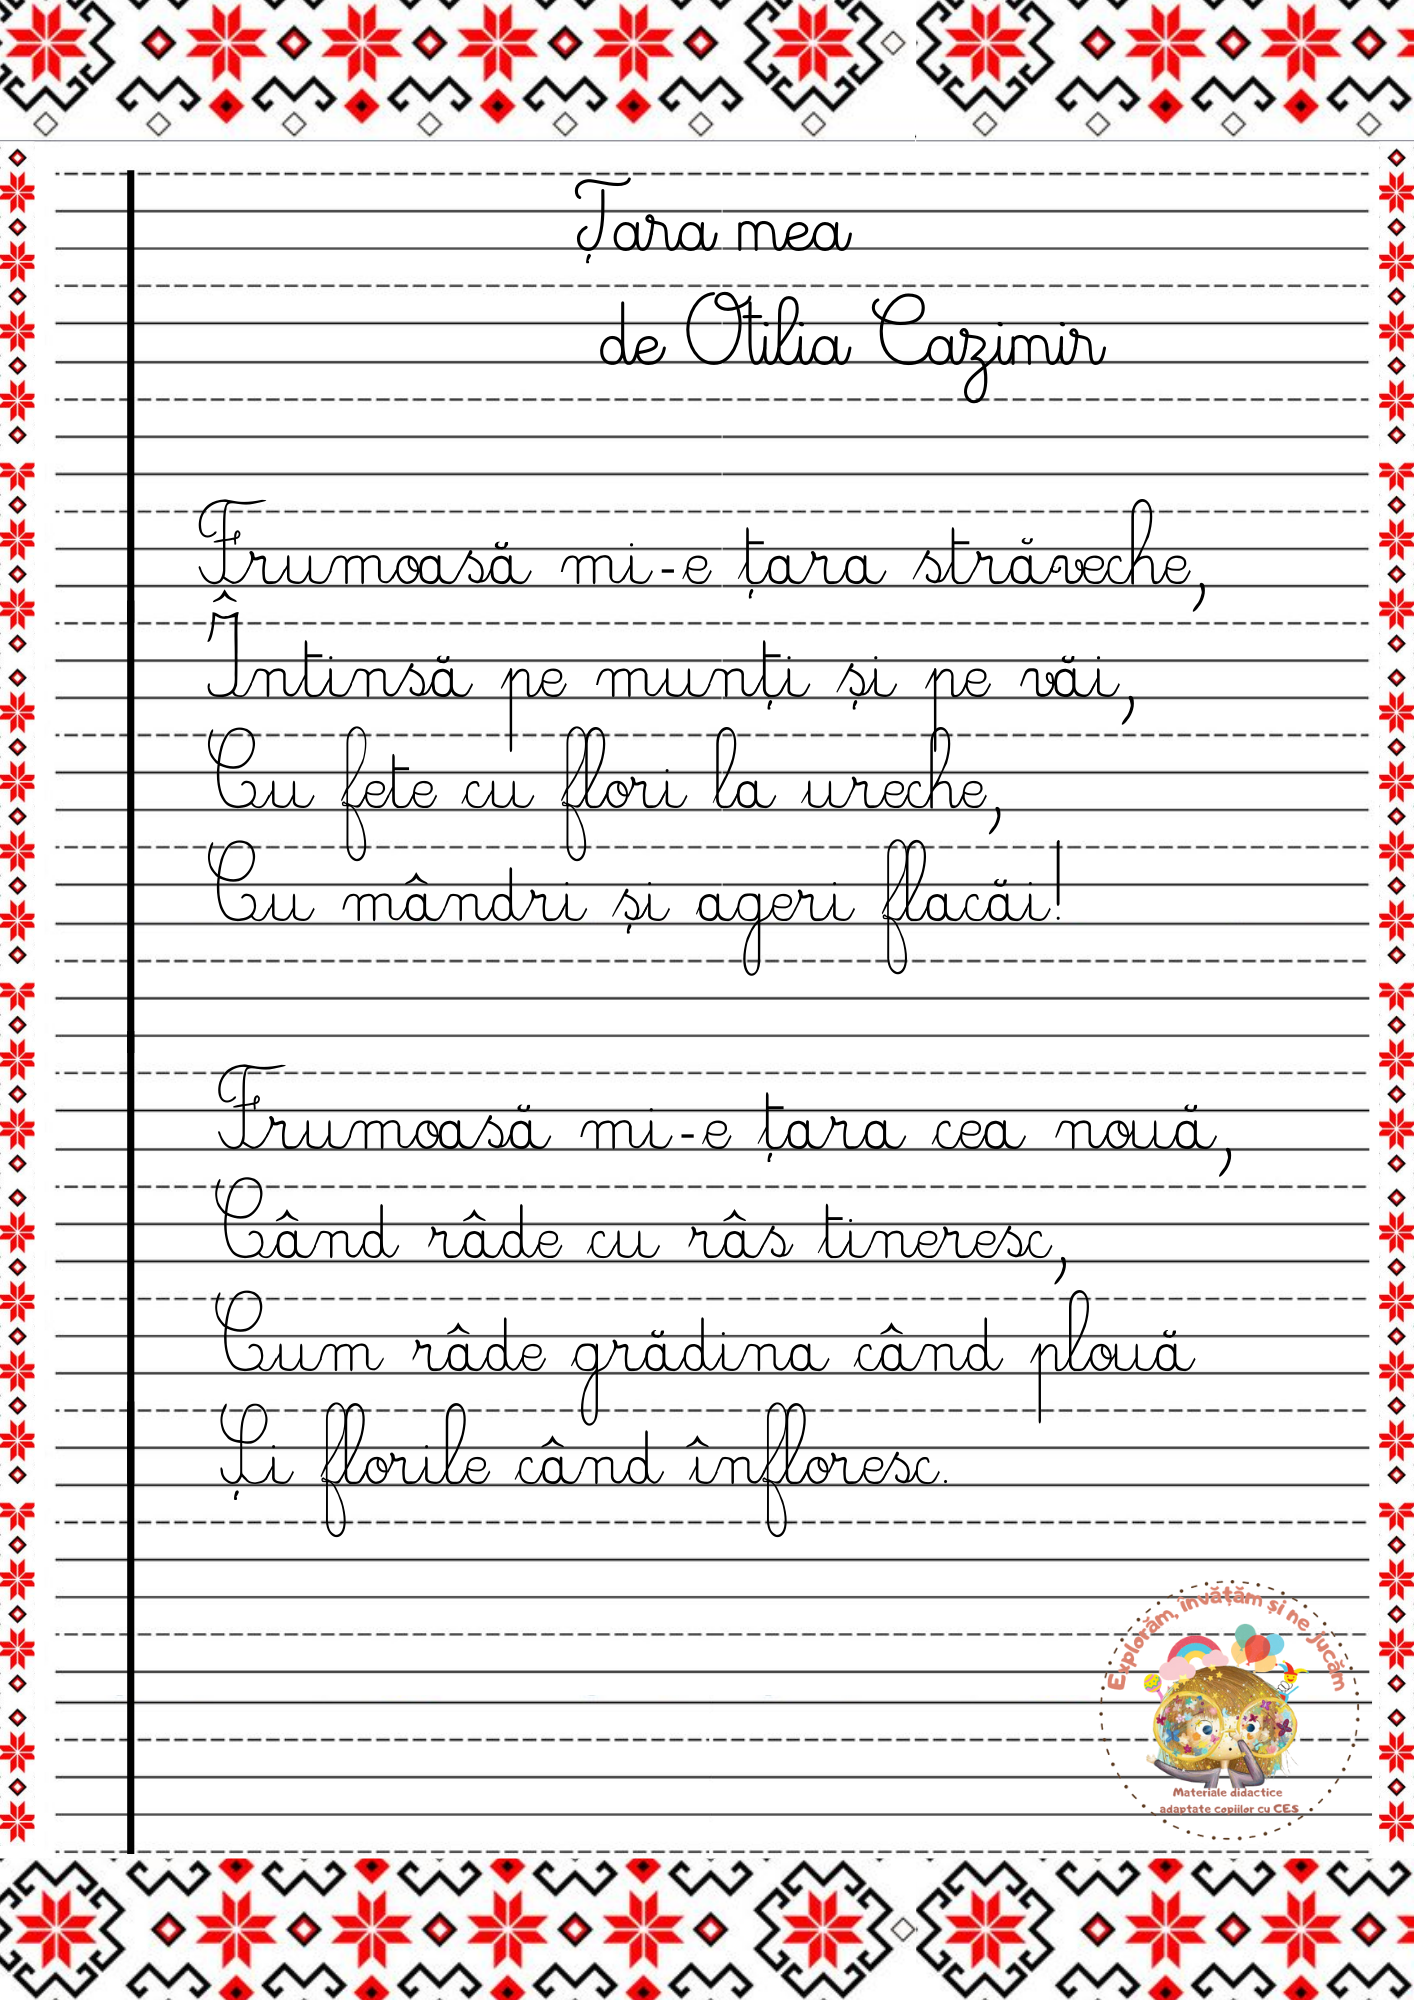 Țara mea
de Otilia Cazimir
Frumoasă mi-e țara străveche,
Întinsă pe munți și pe văi,
Cu fete cu flori la ureche,
Cu mândri și ageri flacăi!
Frumoasă mi-e țara cea nouă,
Când râde cu râs tineresc,
Cum râde grădina când plouă
Și florile când înfloresc.
Explorăm, învățăm și ne jucăm
Materiale didactice
adaptate copiilor cu CES